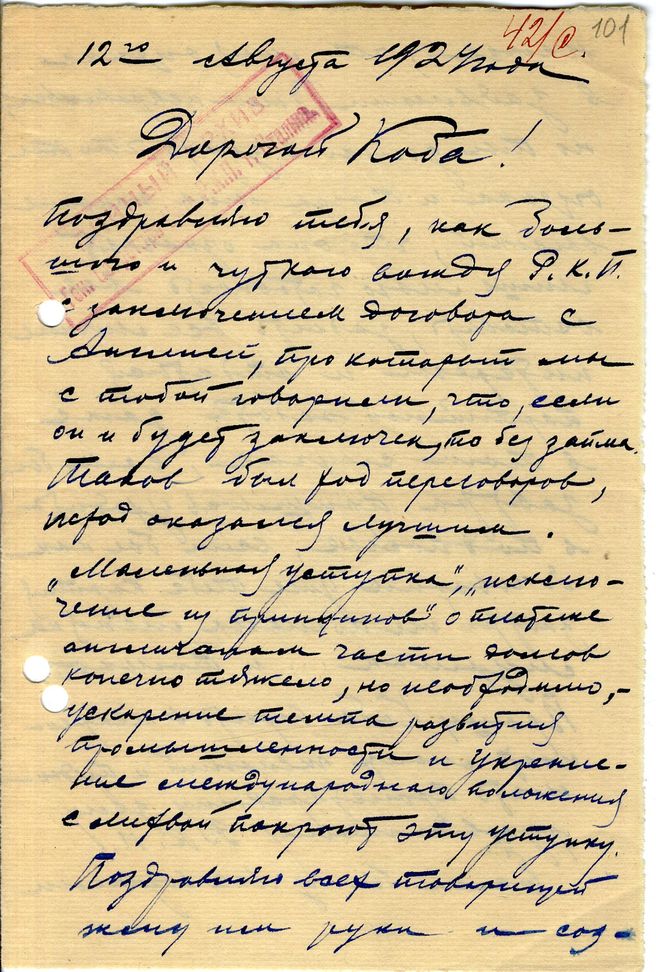 42/с. 101
12го Августа 1924 года
Дорогой Коба!
Поздравляю тебя, как боль-
шого и чуткого вождя Р.К.П.
с заключением договора с
Англией, про который мы
с тобой говорили, что, если
он и будет заключен, то без займа.
Таков был ход переговоров,
исход оказался лучшим.
„Маленькая уступка“, „исклю-
чение из принципов“ о платеже
англичанам части долгов
конечно тяжело, но необходимо, –
ускорение темпа развития
промышленности и укрепле-
ние международного положения
с лихвой покроют эту уступку.
Поздравляю всех товарищей
жму им руки и соз-